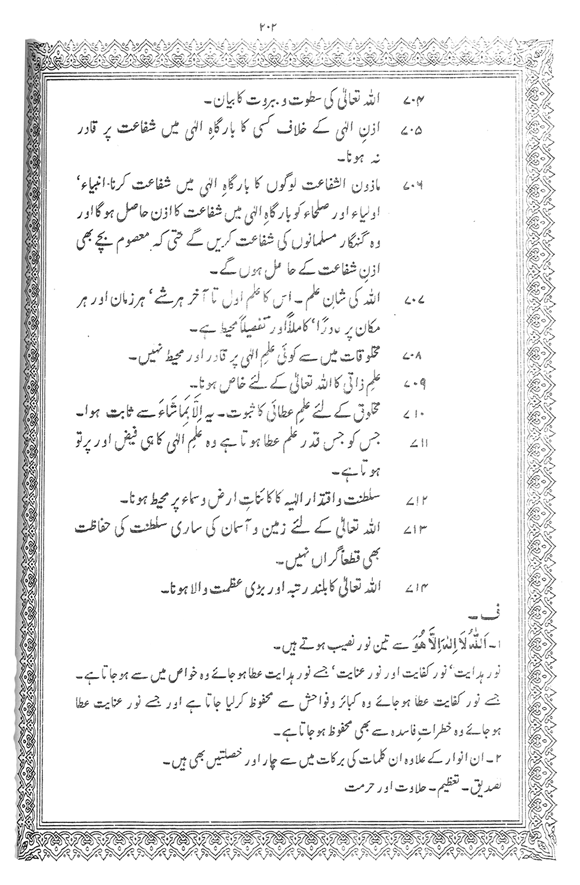 ۲۰۲
۷۰۴ اللہ تعالیٰ کی سطوت و جبروت کا بیان۔
۷۰۵ اذنِ الٰہی کے خلاف کسی کا بارگاہِ الٰہی میں شفاعت پر قادر
نہ ہونا۔
۷۰۶ ماذون الشفاعت لوگوں کا بارگاہِ الٰہی میں شفاعت کرنا۔ انبیاء،
اولیاء اور صلحاء کو بارگاہِ الٰہی میں شفاعت کا اذن حاصل ہو گا اور
وہ گنہگار مسلمانوں کی شفاعت کریں گے حتیٰ کہ معصوم بچے بھی
اذنِ شفاعت کے حامل ہوں گے۔
۷۰۷ اللہ کی شانِ علم۔ اس کا علم اول تا آخر ہر شے، ہر زمان اور ہر
مکان پر کاملاً اور تفصیلاً محیط ہے۔
۷۰۸ مخلوقات میں سے کوئی علمِ الٰہی پر قادر اور محیط نہیں۔
۷۰۹ علمِ ذاتی کا اللہ تعالیٰ کے لئے خاص ہونا۔
۷۱۰ مخلوق کے لئے علمِ عطائی کا ثبوت۔ یہ اِلَّا بِمَا شَاءَ سے ثابت ہوا۔
۷۱۱ جس کو جس قدر علم عطا ہوتا ہے وہ علمِ الٰہی کا ہی فیض اور پرتو
ہوتا ہے۔
۷۱۲ سلطنت و اقتدارِ الٰہیہ کا کائناتِ ارض و سماء پر محیط ہونا۔
۷۱۳ اللہ تعالیٰ کے لئے زمین و آسمان کی ساری سلطنت کی حفاظت
بھی قطعاً گراں نہیں۔
۷۱۴ اللہ تعالیٰ کا بلند رتبہ اور بڑی عظمت والا ہونا۔
ف۔
۱۔ اَللّٰهُ لَا اِلٰهَ اِلَّا هُوَ سے تین نور نصیب ہوتے ہیں۔
نورِ ہدایت، نورِ کفایت اور نورِ عنایت، جسے نور ہدایت عطا ہو جائے وہ خواص میں سے ہو جاتا ہے۔
جسے نور کفایت عطا ہو جائے وہ کبائر و فواحش سے محفوظ کر لیا جاتا ہے اور جسے نور عنایت عطا
ہو جائے وہ خطراتِ فاسدہ سے بھی محفوظ ہو جاتا ہے۔
۲۔ ان انوار کے علاوہ ان کلمات کی برکات میں سے چار اور خصلتیں بھی ہیں۔
تصدیق۔ تعظیم۔ حلاوت اور حرمت